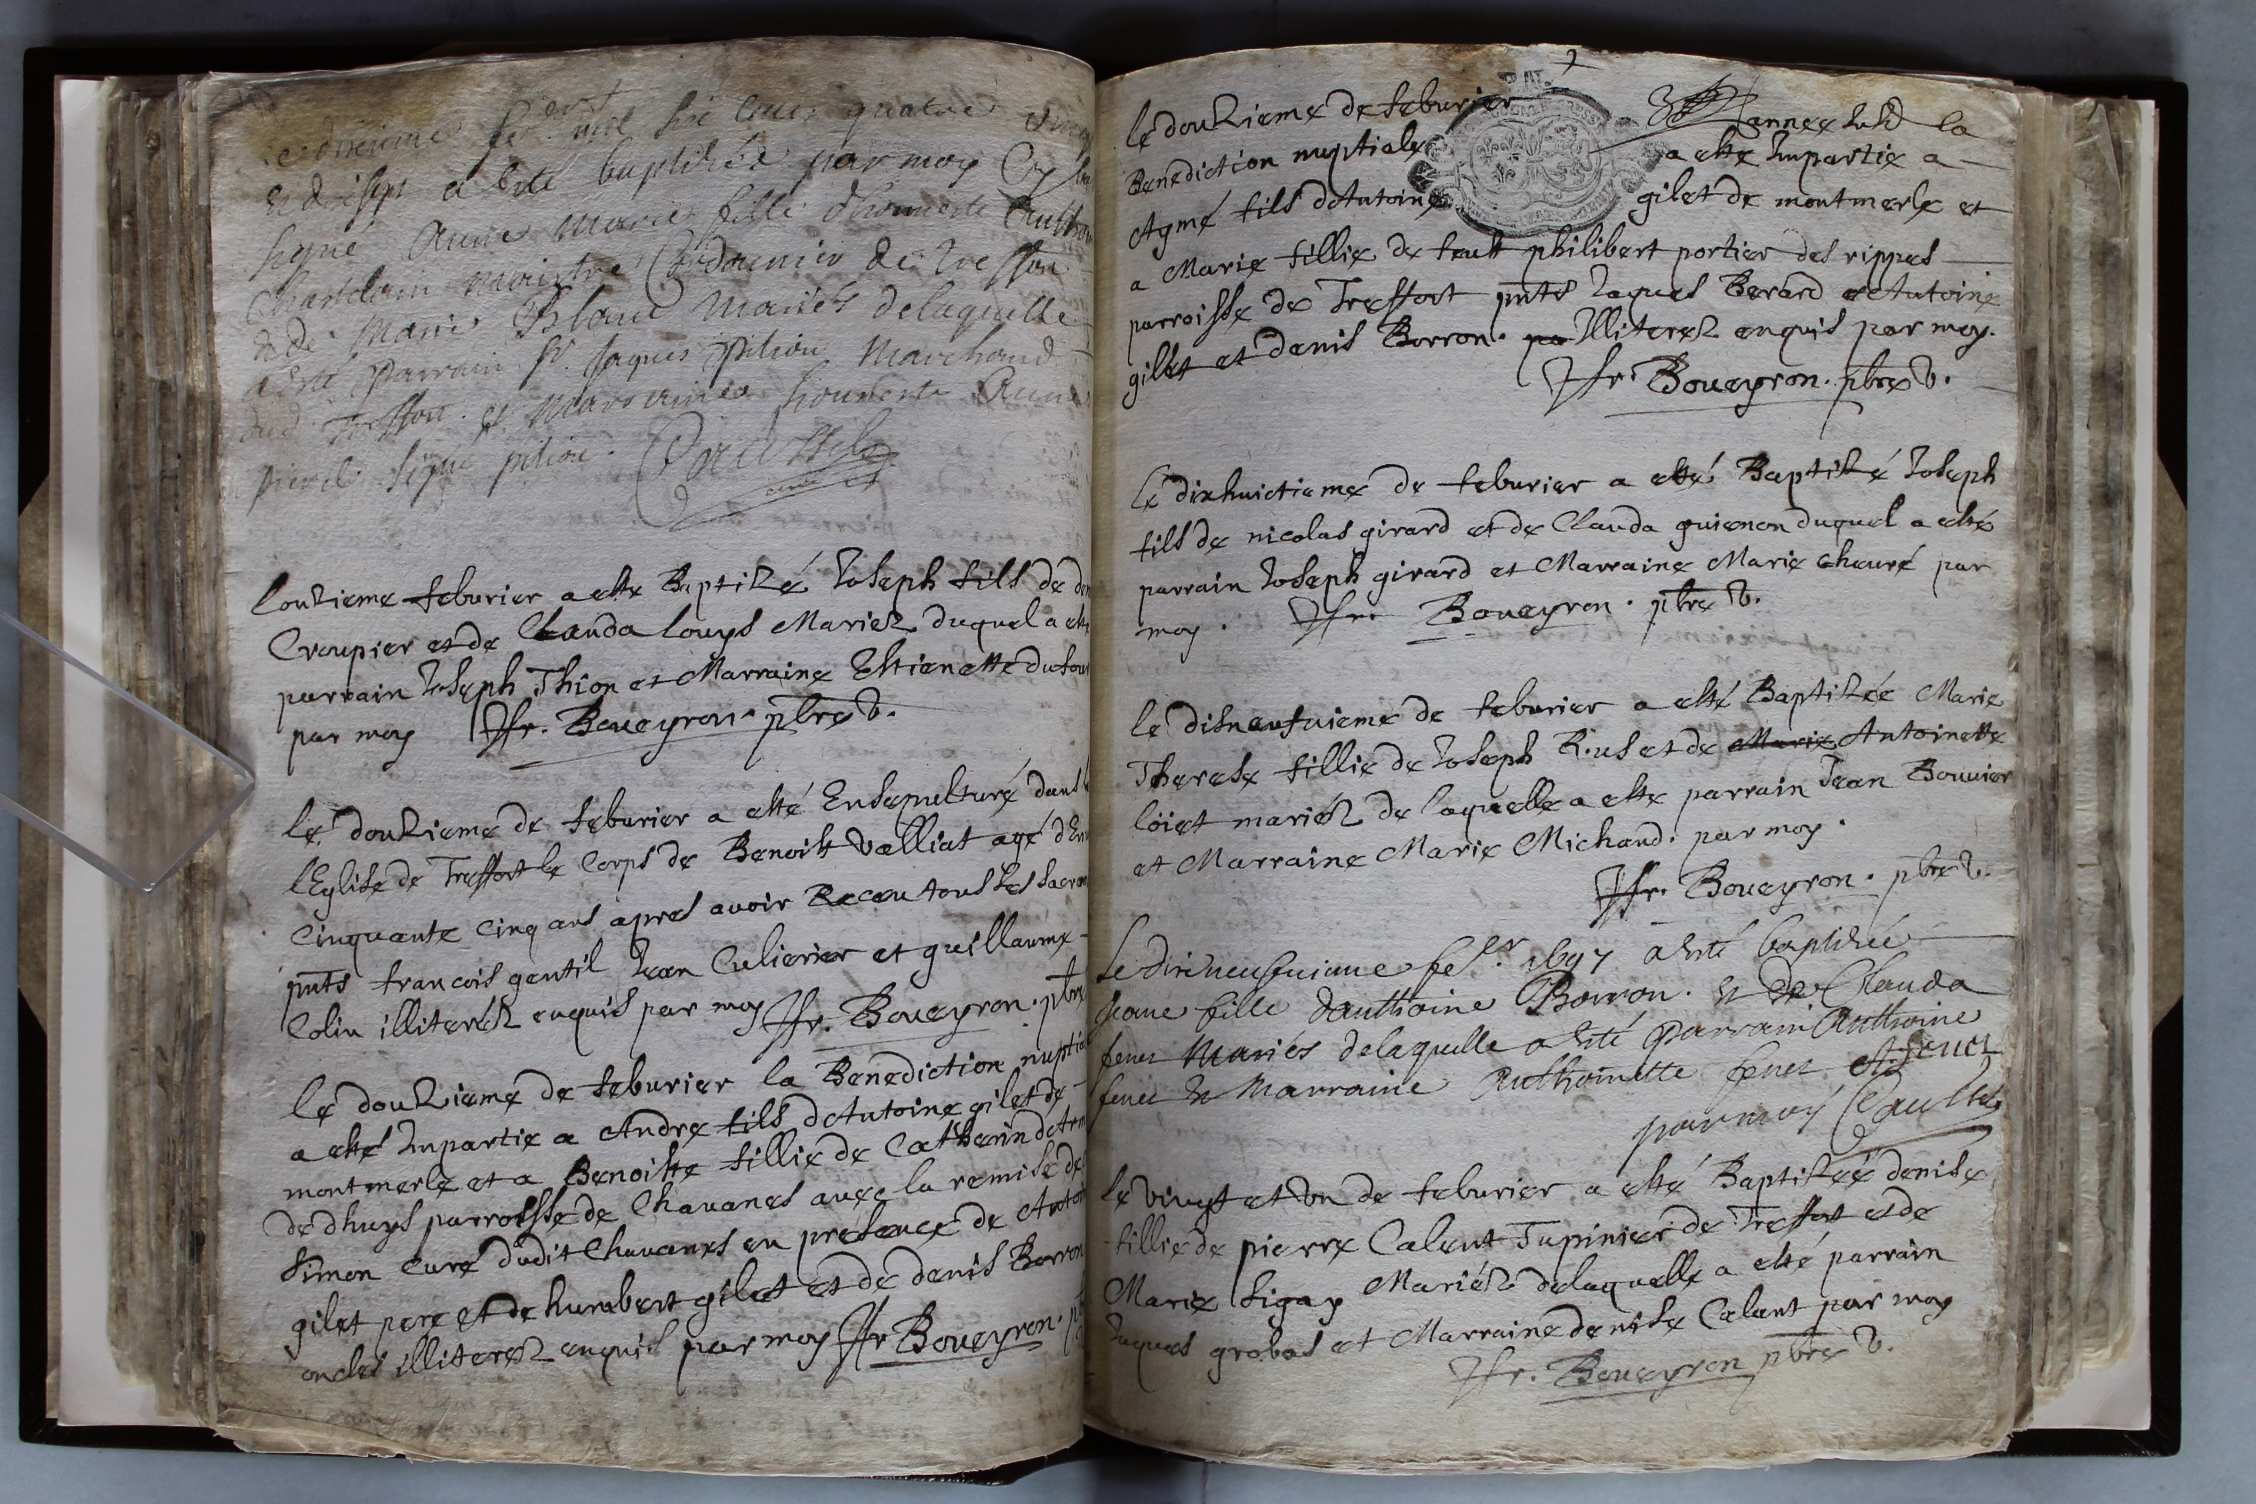 onzieme fer. mil six cens quatre vingt
et dixsept a esté baptizée par moy Cy bas
signé Anne Marie fille d'honneste Anthoine
Chastelain maistre Cordonnier de Treffort
et de Marie Blanc mariés delaquelle
a esté Parrain Sr. Jaques pition Marchand
dud Treffort et marrainne honneste Anne
signé pition.
lonzieme feburier a este Baptizé Joseph fils de
Croupier et de Clauda Louys Mariez duquel a esté
parrain Joseph Thion et Marraine Estienette dufour
par moy Jfr. Boueyron. pbre v.
le douzieme de feburier a esté Ensepulturé dans
lEglise de Treffort le Corps de Benoist Valliat agé dEn
cinquante cinq ans apres avoir Receu tous ses sacrem
pnts francois gentil Jean Culierier et guillaume
Colin illiterez enquis par moy Jfr. Boueyron. pbre
le douzieme de feburier la Benediction nuptia
a esté Impartie a Andre fils dAntoine gilet de
montmerle et a Benoiste fillie de Catherin
de dhuys parroisse de Chavanes avec la remise de
simon Curé dudit Chavanes en presence de Antoi
gilet pere et de humbert gilet et de denis Borron
oncles illiterez enquis par moy Jfr Boueyron.
2
le douzieme de feburier annee susd la
Benediction nuptiale a este Impartie a
Aymé fils dAntoine gilet de montmerle et
a Marie fillie de feust philibert portier des rippes
parroisse de Treffort pnts Jaques Berard et Antoine
gillet et denis Borron. Illiterez enquis par moy.
Jfr. Boueyron. pbre v.
Le dixhuictieme de feburier a esté Baptizé Joseph
fils de nicolas girard et de Clauda guienon duquel a esté
parrain Joseph girard et Marraine Marie cheuré par
moy. Jfr. Boueyron. pbre v.
le disneufuieme de feburier a esté Baptizée Marie
Therese fillie de Joseph Rius et de Marie Antoinette
loiet mariéz de laquelle a este parrain Jean Bouuier
et Marraine Marie Michaud. par moy.
Jfr. Boueyron. pbre v.
Le dixneufuieme fer. 1697 a esté baptizée
Jeane fille dAnthoine Borron. et de Clauda
feuer Mariés delaquelle a esté Parrain Anthoine
feuer et Marraine Anthoinette feuer
par moy
le vingt et vn de feburier a esté Baptizéé denise
fillie de pierre Calant Tupinier de Treffort et de
Marie sigay Mariéz delaquelle a esté parrain
Jaques grobas et Marraine denise Calant par moy
Jfr. Boueyron pbre v.